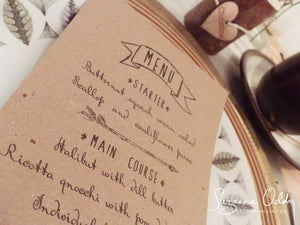 MENU
*STARTER*
Butternut squash warm salad
Scallop and cauliflower puree
*MAIN COURSE*
Halibut with dill butter
Ricotta gnocchi with
Individual
Suzanne Oddy